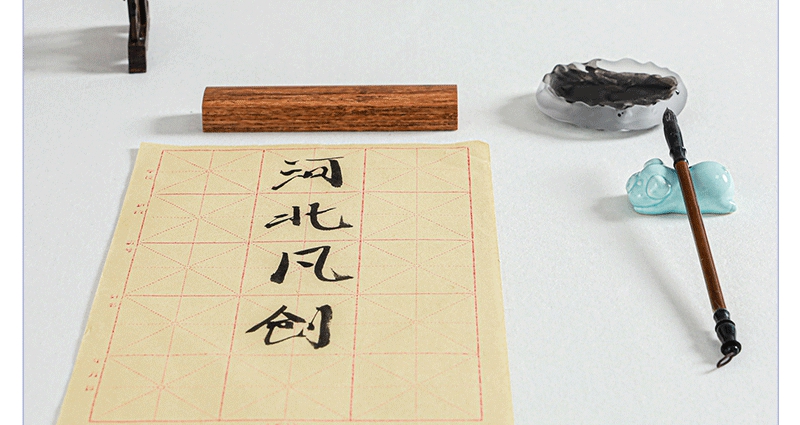 河北凡创